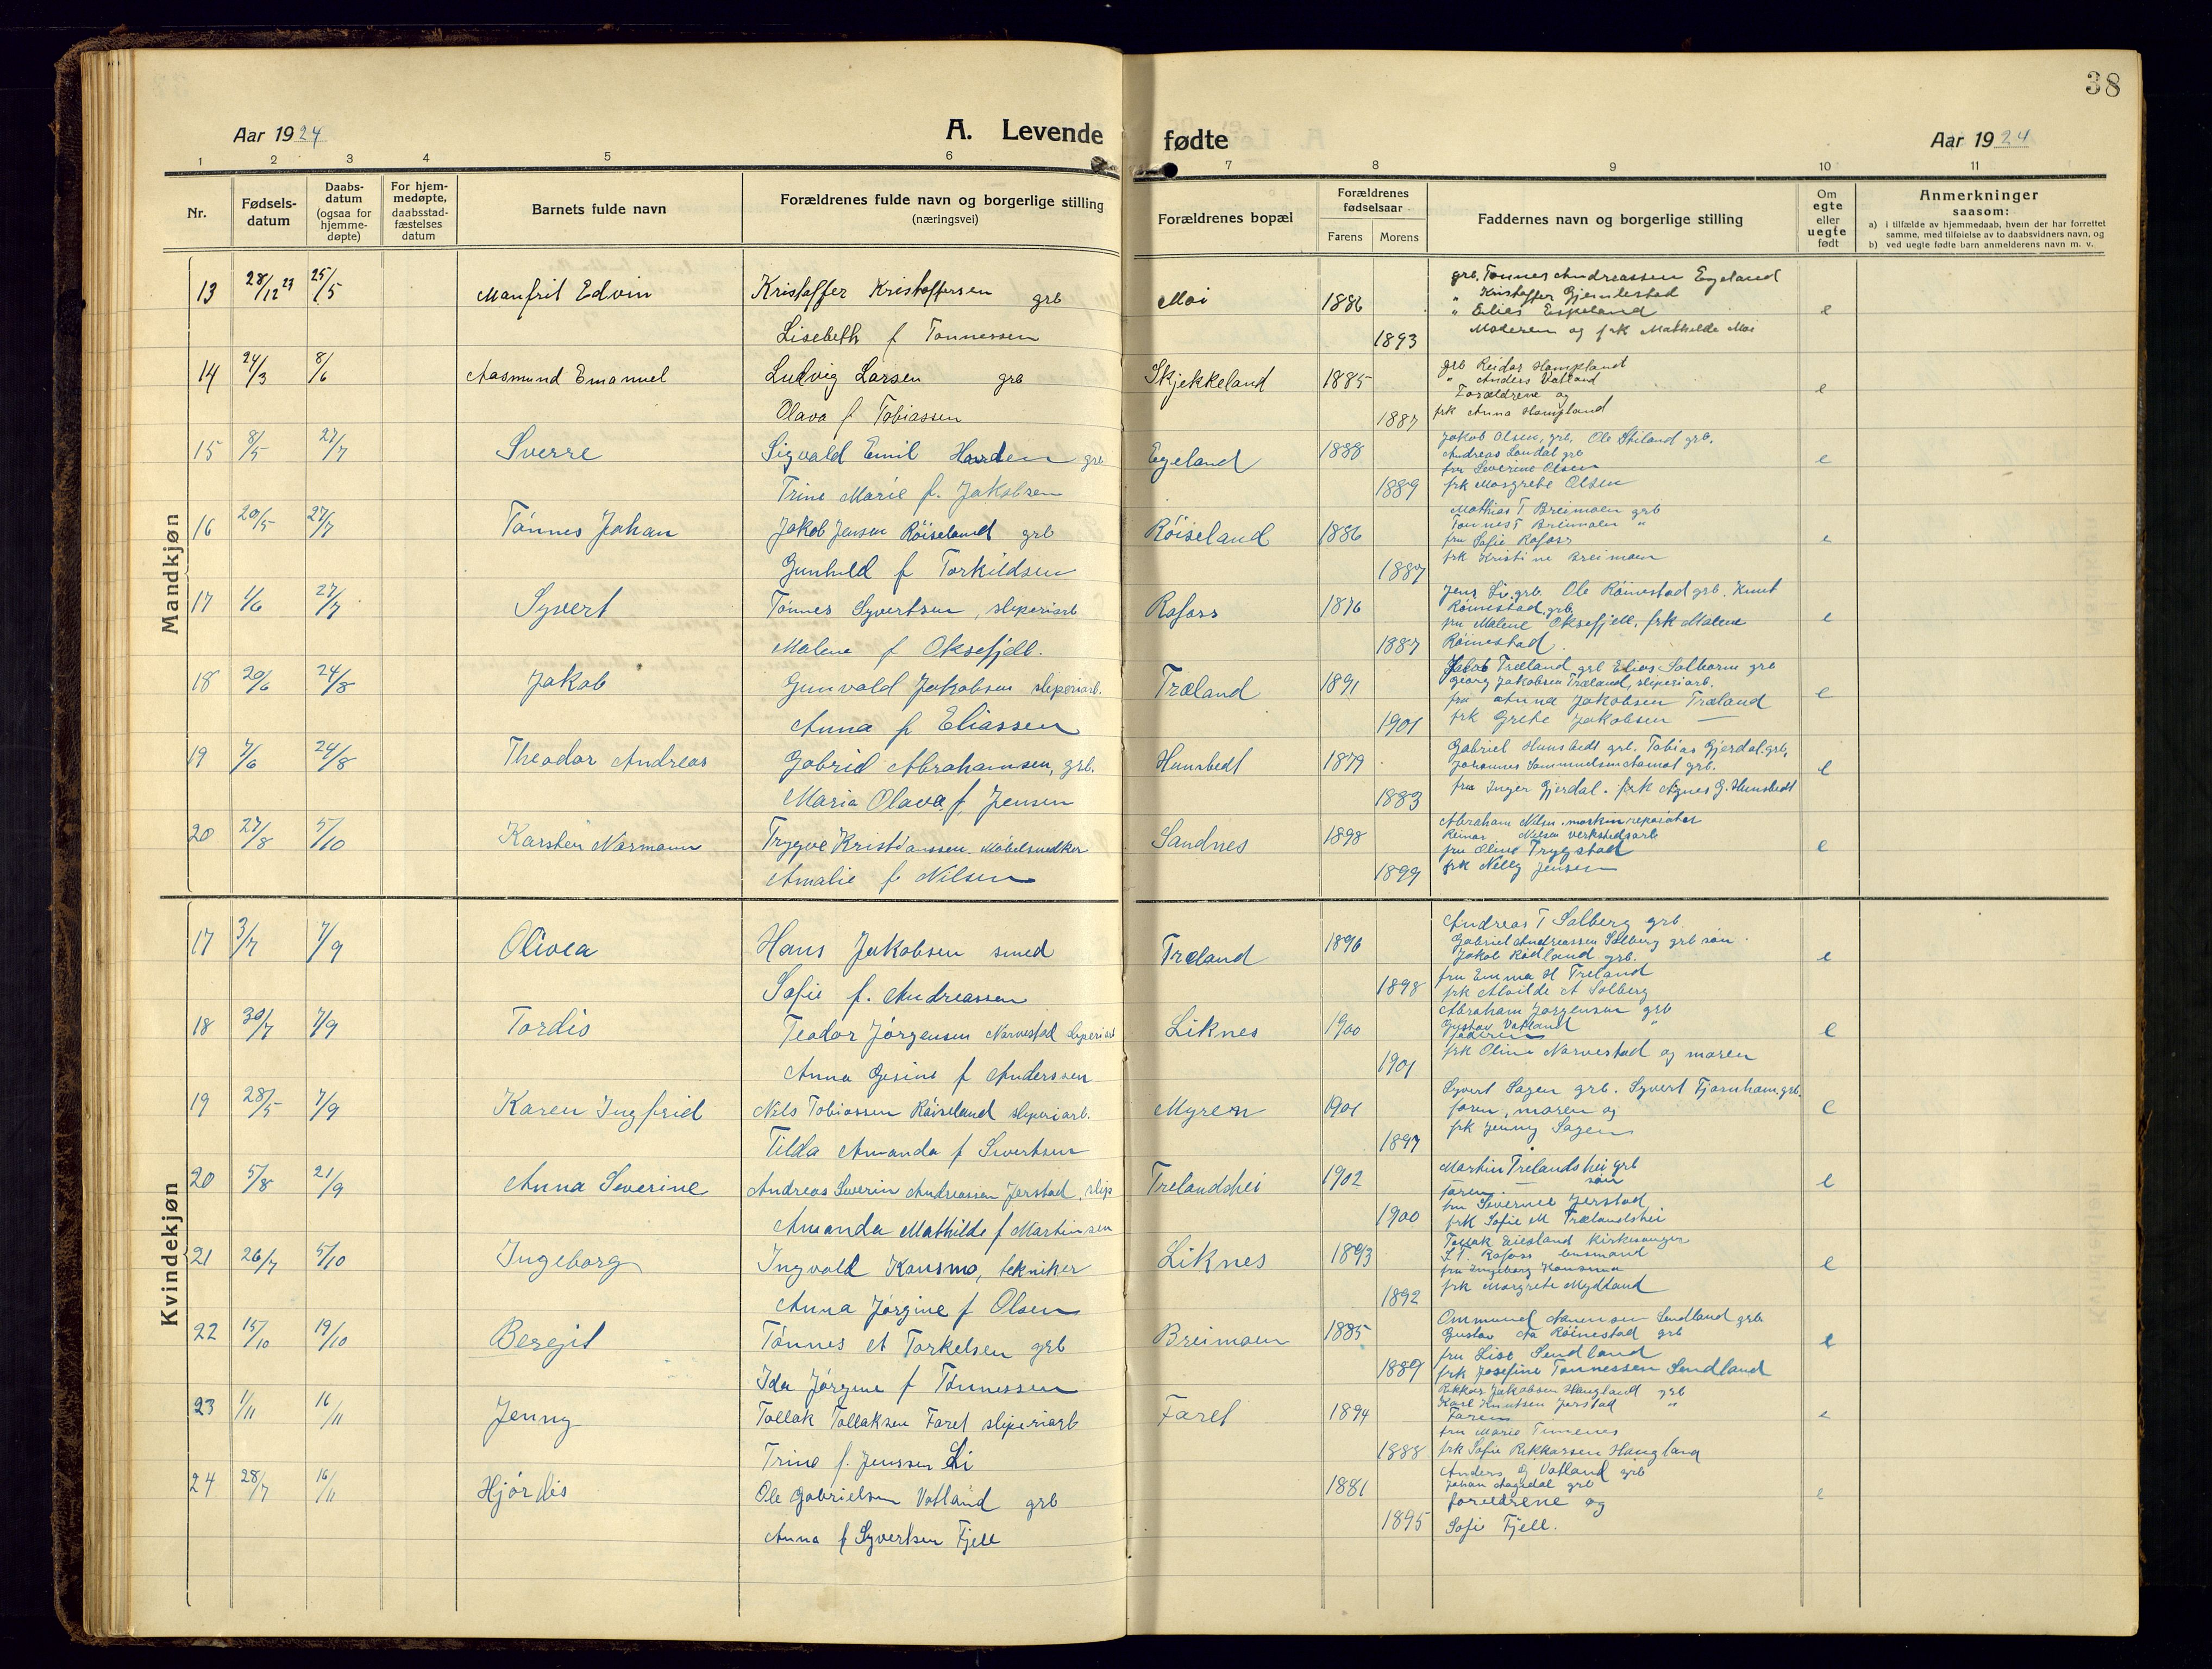 38
Aar 1924
A. Levende fødte
Aar 1924
1 2 3 4 5 6 7 8 9 10 11
Nr.
Fødsels-
datum
Daabs-
datum
(ogsaa for
hjemme-
døpte)
For hjem-
medøpte,
daabsstad-
fæstelses
datum
Barnets fulde navn
Forældrenes fulde navn og borgerlige stilling
(næringsvei)
Forældrenes bopæl
Forældrenes
fødselsaar
Farens Morens
Faddernes navn og borgerlige stilling
Om
egte
eller
uegte
født
Anmerkninger
saasom:
a) i tilfælde av hjemmedaab, hvem der har forrettet
samme, med tilføielse av to daabsvidners navn, og
b) ved uegte fødte barn anmelderens navn m. v.
Mandkjøn
13 28/12 23 25/5 Manfrit Edvin Kristoffer Kristoffersen grb Moi 1886 grb. Tønnes Andreassen Egeland
" Kristoffer Gjemlestad
" Elias Eskeland e
Lisebeth f Tønnessen 1893 Moderen og frk Mathilde Moi
14 24/3 8/6 Aasmund Emanuel Ludvig Larsen grb Skjekkeland 1885 grb Reidar Hompland
" Anders Vatland
Forældrene og e
Olava f Tobiassen 1887 frk Anna Hompland
15 8/5 27/7 Sverre Sigvald Emil Hardem grb Egeland 1888 Jakob Olsen, grb. Ole Stiland grb.
Andreas Londal grb
fru Severine Olsen e
Trine Marie f. Jakobsen 1889 frk Margrethe Olsen
16 20/5 27/7 Tønnes Johan Jakob Jensen Røiseland grb Røiseland 1886 Mathias T Breimoen grb
Tønnes T Breimoen "
fru Sofie Rafoss e
Gunhild f Torkildsen 1887 frk Kristine Breimoen
17 1/6 27/7 Syvert Tønnes Syvertsen, sliperiarb Rafoss 1876 Jens Li, grb. Ole Røinestad grb. Knut
Røinestad, grb.
fru Malene Oksefjell, frk Malene e
Malene f Oksefjell. 1887 Røinestad.
18 20/6 24/8 Jakob Gunvald Jakobsen sliperiarb. Træland 1891 Jakob Træland grb Elias Salthorm grb
Georg Jakobsen Træland, sliperiarb.
fru Anna Jakobsen Træland e
Anna f Eliassen 1901 frk Grethe Jakobsen —
19 7/6 24/8 Theodor Andreas Gabriel Abrahamsen, grb. Hunsbedt 1879 Gabriel Hunsbedt grb. Tobias Gjerdal. grb.
Johannes Sammuelsen Aamot grb. e
Maria Olava f. Jensen 1883 fru Inger Gjerdal. frk Agnes G. Hunsbedt
20 27/8 5/10 Karsten Normann Trygve Kristianssen. Møbelsnedker Sandnes 1898 Abraham Nilsen, maskinreparatør
Reinar Nilsen verkstedsarb
fru Oline Trygstad e
Amalie f Nilsen 1899 frk Nelly Jensen
Kvindekjøn
17 3/7 7/9 Olivea Hans Jakobsen smed Træland 1896 Andreas T Salberg grb.
Gabriel Andreassen Salberg grb søn.
Jakob Rødland grb. e
Sofie f. Andreassen 1898 fru Emma H Træland
frk Alvilde A Salberg
18 30/7 7/9 Tordis Teodor Jørgensen Narvestad sliperiarb Liknes 1900 Abraham Jørgensen grb
Gustav Vatland "
Faderen e
Anna Gesine f Anderssen 1901 frk Oline Narvestad og moren
19 28/5 7/9 Karen Ingfrid Nils Tobiassen Røiseland sliperiarb. Myren 1901 Syvert Sagen grb. Syvert Tjørnham. grb.
faren, moren og e
Tilda Amanda f Sivertsen 1897 frk Jenny Sagen
20 5/8 21/9 Anna Severine Andreas Severin Andreassen Jerstad, slip Trelandshei 1902 Martin Trelandshei grb
faren. — søn e
fru Severine Jerstad
Amanda Mathilde f Martinsen 1900 frk Sofie M Trælandshei
21 26/7 5/10 Ingeborg Ingvald Kvasmo, tekniker Liknes 1893 Tollak Eiesland kirkesanger
S.T. Rafoss lensmand
fru Ingeborg Kvasmo e
Anna Jørgine f Olsen 1892 frk Margrete Mydland
22 15/10 19/10 Beregit Tønnes A Torkelsen grb Breimoen 1885 Ommund Aanenson Sendland grb
Gustav Aa Røinestad grb e
fru Lise Sendland
Ida Jørgine f Tønnessen 1889 frk Josefine Tønnessen Sendland
23 1/11 16/11 Jenny Tollak Tollaksen Faret sliperiarb Faret 1894 Rikkar Jakobsen Haugland grb
Karl Knutsen Jerstad "
Faren e
fru Marie Timenes
Trine f. Jenssen Li 1888 frk Sofie Rikkarsen Haugland
24 28/7 16/11 Hjørdis Ole Gabrielsen Vatland grb 1881 Anders G Vatland grb
Johan Aagedal grb
forældrene og e
Anna f Syvertsen Fjell 1895 Sofie Fjell.